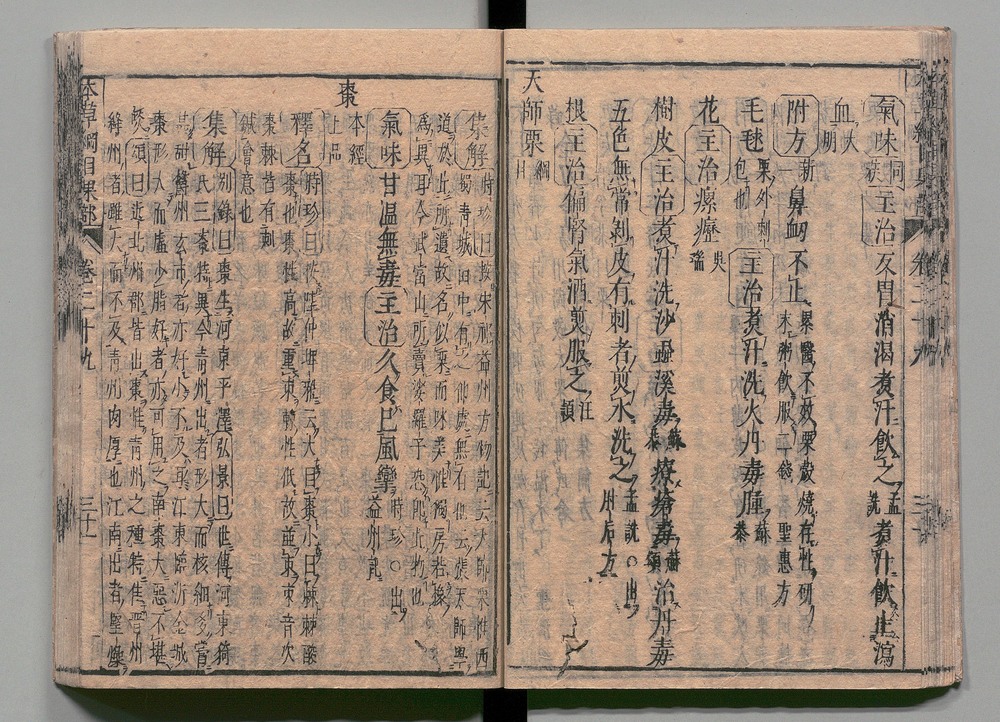 氣味 同莢 主治 反胃消渴煮汁飲之 孟詵 煮汁飲止瀉
血 大明
附方 新一 鼻衄不止 累醫不效栗殼燒存性研末粥飲服二錢 聖惠方
毛毬 栗外刺包也 主治 煮汁洗火丹毒腫 蘇恭
花 主治 瘰癧 吳瑞
樹皮 主治 煮汁洗沙蝨溪毒 蘇恭 療瘡毒 蘇頌 治丹毒
五色無常剝皮有刺者煎水洗之 孟詵 ○出肘后方
根 主治 偏腎氣酒煎服之 汪頴
天師栗 綱目
集解 時珍曰按宋祁益州方物記云天師栗惟西
蜀青城山中有之他處無有也云張天師學
道於此所遺故名似栗而味美惟獨房若橡
為異耳今武當山所賣娑羅子恐即此物也
氣味 甘温無毒 主治 久食巳風攣 時珍 ○出益州記
棗 本經上品
釋名 時珍曰按陸佃埤雅云大曰棗小曰棘棘酸
棗也棗性高故重朿棘性低故並朿朿音次
棗棘皆有刺
鍼會意也
集解 别錄曰棗生河東平澤 弘景曰世傳河東猗
氏縣棗特異今青州出者形大而核細多膏
甚甜鬱州玄市者亦好小不及耳江東臨沂金城
棗形大而虛少脂好者亦可用之南棗大惡不堪
啖 頌曰近北州郡皆出棗惟青州之種特佳晋州
絳州者雖大而不及青州肉厚也江南出者堅燥
本草綱目果部 卷二十九 三十一